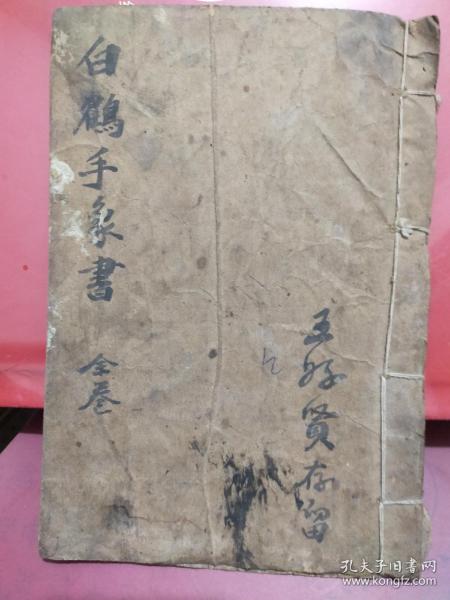 白鶴手象書
全卷
王好賢存留
孔夫子旧书网
www.kongfz.com